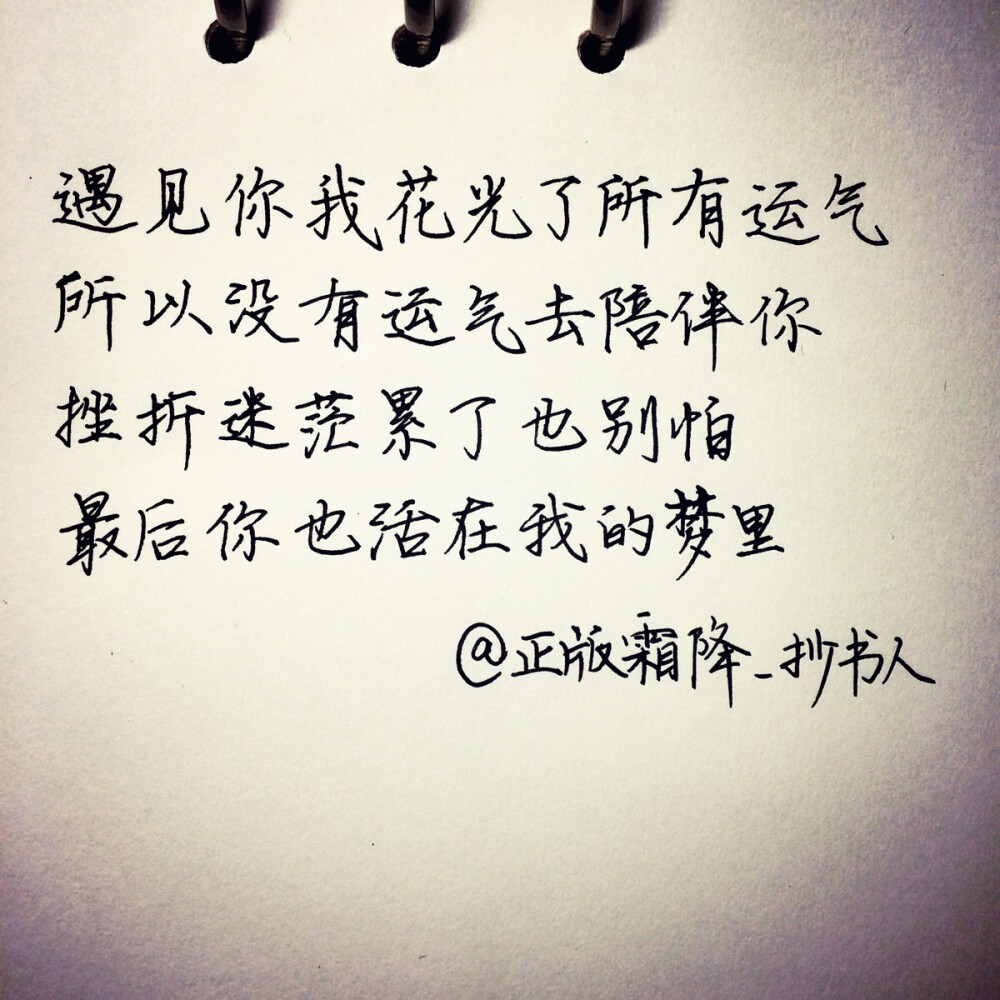 遇见你我花光了所有运气
所以没有运气去陪伴你
挫折迷茫累了也别怕
最后你也活在我的梦里
@正版霜降_抄书人